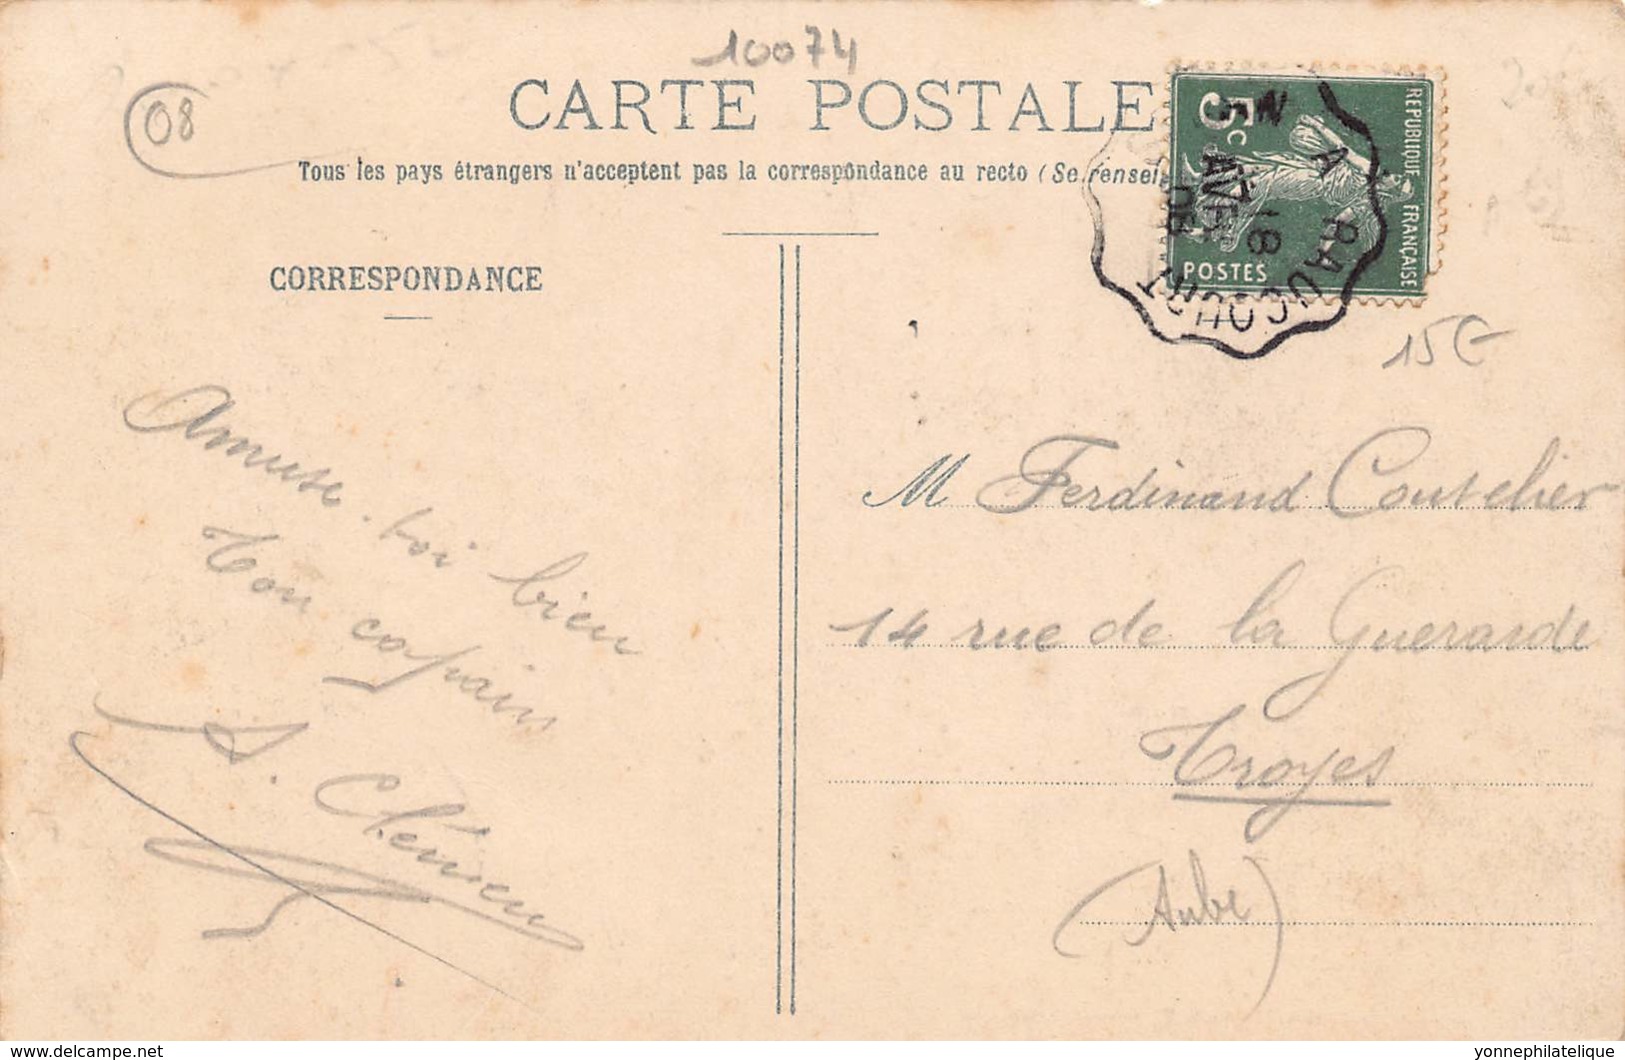 10074
08
CARTE POSTALE
Tous les pays étrangers n'acceptent pas la correspondance au recto (Se rensei
RÉPUBLIQUE FRANÇAISE
5c
POSTES
N A RAUCOURT
18
AVR
08
CORRESPONDANCE
15€
Amuse-toi bien
Ton copain
M Ferdinand Coutelier
14 rue de la Guerarde
Troyes
(Aube)
www.delcampe.net
yonnephilatelique